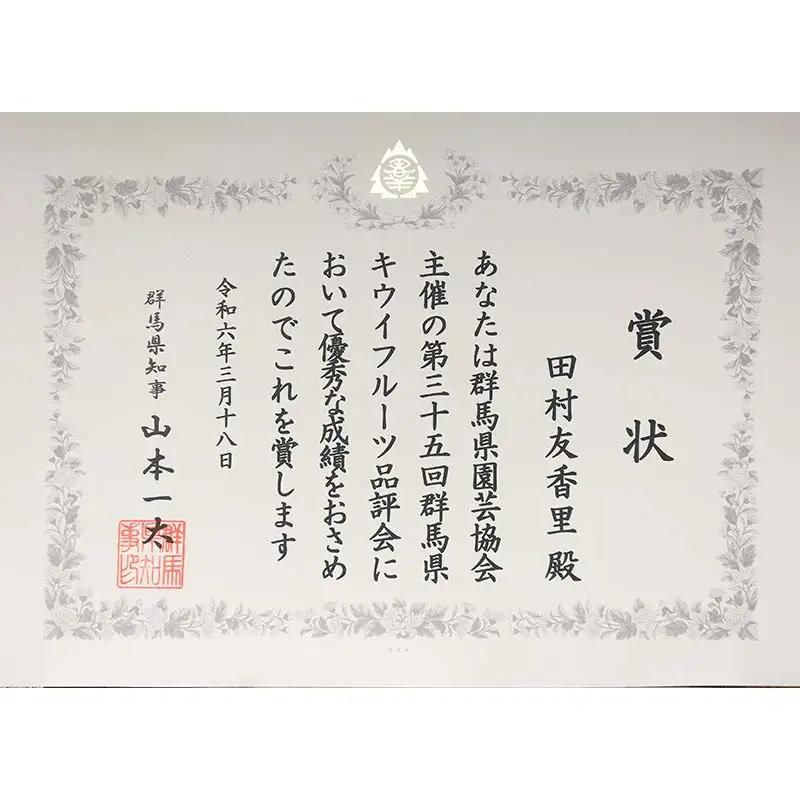 賞状
田村友香里 殿
あなたは群馬県園芸協会
主催の第三十五回群馬県
キウイフルーツ品評会に
おいて優秀な成績をおさめ
たのでこれを賞します
令和六年三月十八日
群馬県知事 山本一太
群馬
県知
事印